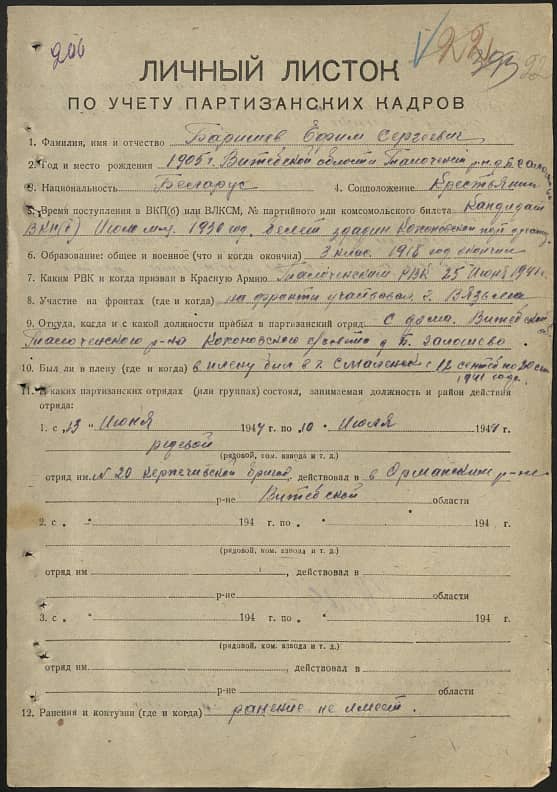 206
ЛИЧНЫЙ ЛИСТОК
ПО УЧЕТУ ПАРТИЗАНСКИХ КАДРОВ
1. Фамилия, имя и отчество Ефим Сергеевич
2. Год и место рождения 1905 г. Витебской области Талоченский р-н
3. Национальность Беларус 4. Соцположение Крестьянин
5. Время поступления в ВКП(б) или ВЛКСМ, № партийного или комсомольского билета Кандидат
ВКП(б) билет Кохоновской
6. Образование: общее и военное (что и когда окончил) 3 клас. 1918 год окончил
7. Каким РВК и когда призван в Красную Армию Талоченским РВК 25 июня 1941
8. Участие на фронтах (где и когда) на фронти участвовал г. Вязьма
9. Откуда, когда и с какой должности прибыл в партизанский отряд: с дома. Витебской
Талоченского р-на Кохоновского с/совета д.
10. Был ли в плену (где и когда) в плену был в г. Смаленск с 12 сентяб по 20
1941 года.
11. В каких партизанских отрядах (или группах) состоял, занимаемая должность и район действия
отряда:
1. с „13 “ Июня 1944 г. по „10 “ Июля 1944 г.
рядовой
(рядовой, ком. взвода и т. д.)
отряд им. № 20 бригад, действовал в
р-не Витебской области
2. с „ “ 194 г. по „ “ 194 г.
(рядовой, ком. взвода и т. д.)
отряд им , действовал в
р-не области
3. с „ “ 194 г. по „ “ 194 г.
(рядовой, ком. взвода и т. д.)
отряд им , действовал в
р-не области
12. Ранения и контузии (где и когда) ранение не имеет.